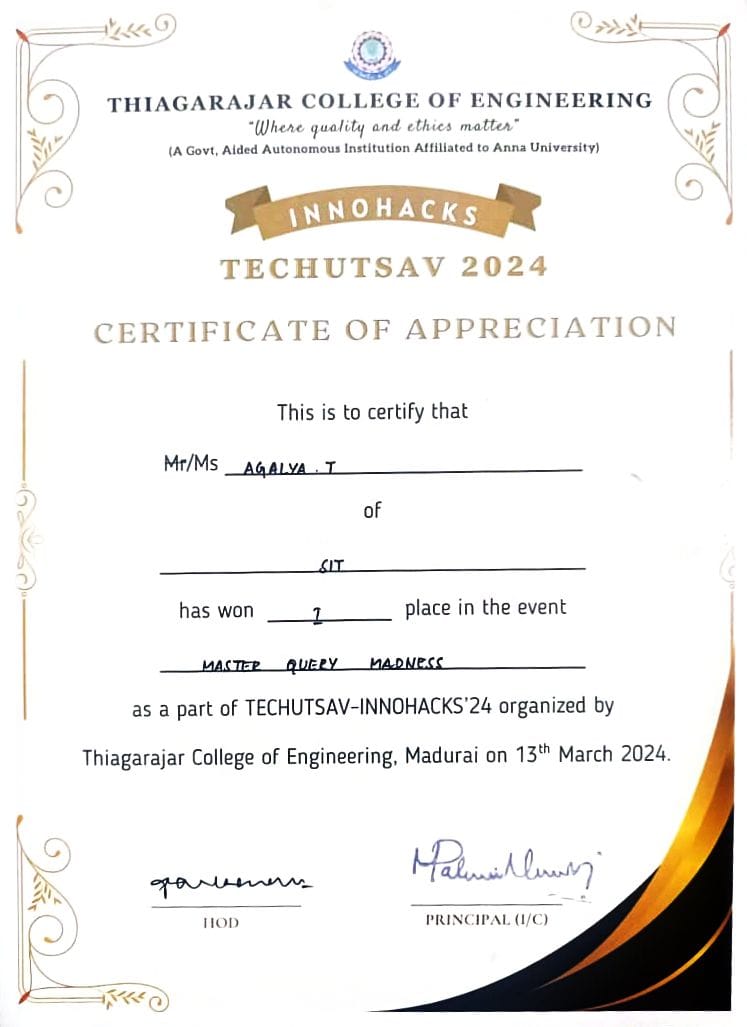 THIAGARAJAR COLLEGE OF ENGINEERING
"Where quality and ethics matter"
(A Govt, Aided Autonomous Institution Affiliated to Anna University)
INNOHACKS
TECHUTSAV 2024
CERTIFICATE OF APPRECIATION
This is to certify that
Mr/Ms AGALYA . T
of
SIT
has won I place in the event
MASTER QUERY MADNESS
as a part of TECHUTSAV-INNOHACKS'24 organized by
Thiagarajar College of Engineering, Madurai on 13th March 2024.
HOD
PRINCIPAL (I/C)